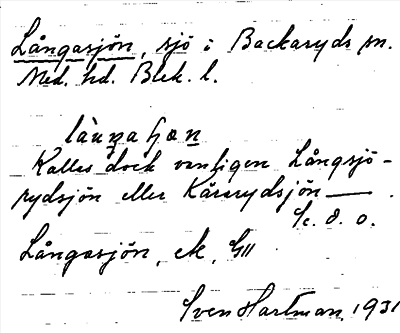 Långasjön, sjö i Backaryds sn.
Med. hd. Blek. l.
Kallas dock vanligen Långsjö-
rydsjön eller Kårarydsjön — .
Långasjön, ek, G11
Sven Hartman, 1931